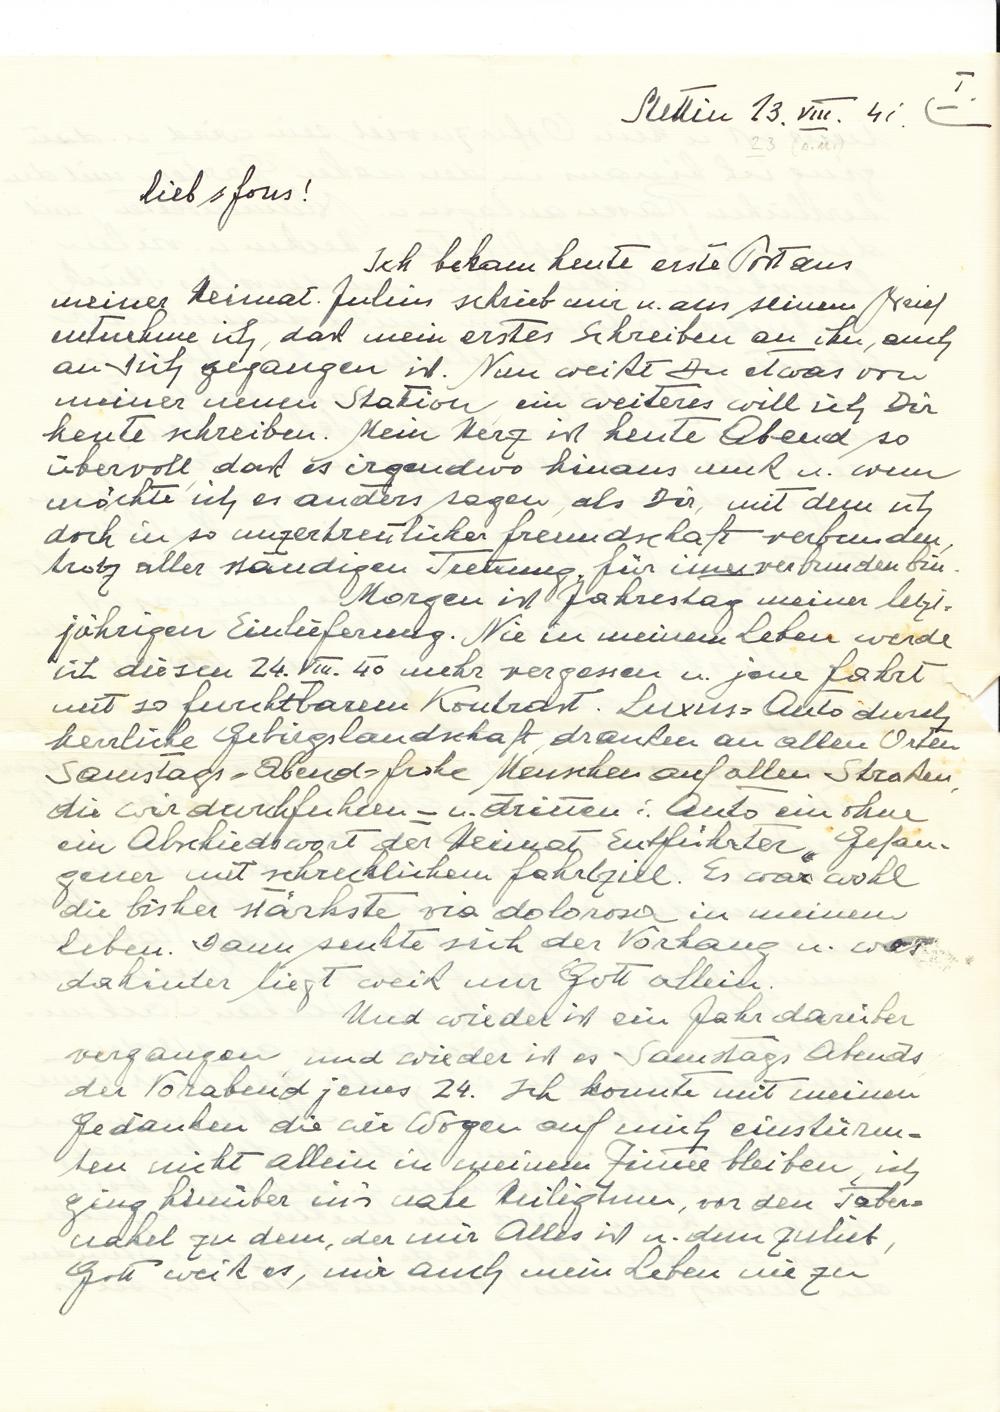 Stettin 23. VIII. 41. I.
23 (a.m.)
Lieb's fons!
Ich bekam heute erste Post aus
meiner Heimat. Julius schrieb mir u. aus seinem Brief
entnehme ich, daß mein erstes Schreiben an ihn, auch
an Dich gegangen ist. Nun weißt Du etwas von
meiner neuen Station, ein weiteres will ich Dir
heute schreiben. Mein Herz ist heute Abend so
übervoll, daß es irgendwo hinaus muß u. wem
möchte ich es anders sagen, als Dir, mit dem ich
doch in so unzertrenlicher Freundschaft verbunden,
trotz aller ständigen Trenung, für imer verbunden bin.
Morgen ist Jahrestag meiner letzt-
jährigen Einlieferung. Nie in meinem Leben werde
ich diesen 24. VIII. 40 mehr vergessen u. jene Fahrt
mit so furchtbarem Kontrast. Luxus-Auto durch
herrliche Gebirgslandschaft, draußen an allen Orten
Samstags-Abend-frohe Menschen auf allen Straßen,
die wir durchfuhren - u. drinen i. Auto ein ohne
ein Abschiedswort der Heimat Entführter, Gefan-
gener mit schrecklichem Fahrtziel. Es war wohl
die bisher stärkste via dolorosa in meinem
Leben. Dann senkte sich der Vorhang u. was
dahinter liegt weiß nur Gott allein.
Und wieder ist ein Jahr darüber
vergangen und wieder ist es Samstags Abends
der Vorabend jenes 24. Ich konnte mit meinen
Gedanken die wie Wogen auf mich einstürm-
ten nicht allein in meinem Zimer bleiben, ich
ging hinüber in's nahe Heiligtum, vor den Taber-
nakel zu dem, der mir Alles ist u. dem zulieb,
Gott weiß es, mir auch mein Leben nie zu